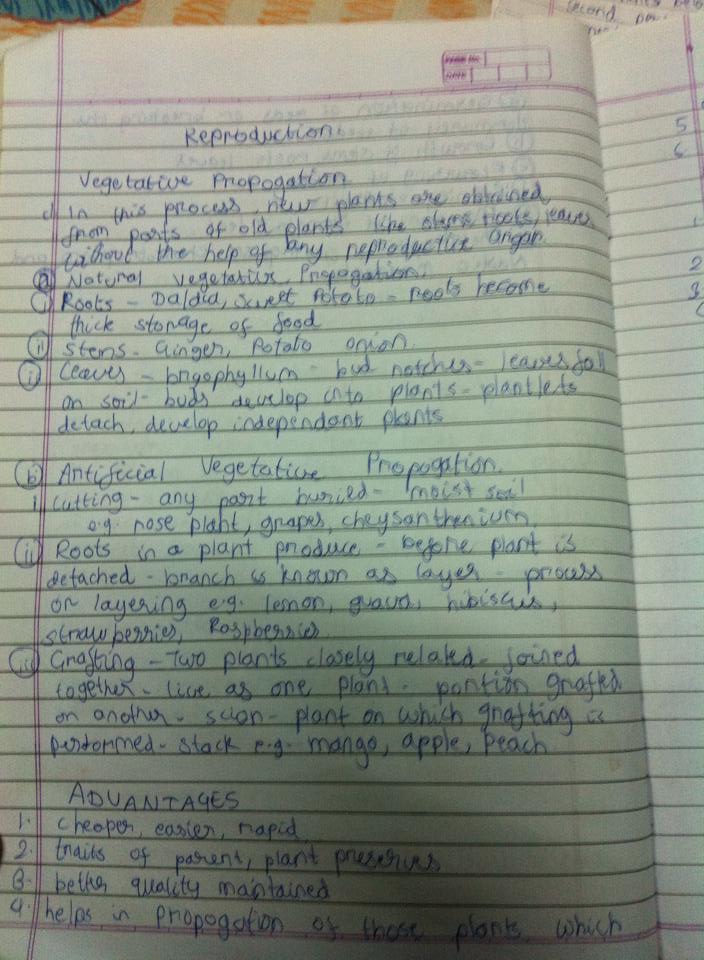 Reproduction
Vegetative Propogation
In this process, new plants are obtained
from parts of old plants like stems, roots, leaves
without the help of any reproductive organ
(a) Natural vegetative Propogation
(i) Roots - Daldia, sweet Potato - roots become
thick storage of food
(ii) Stems - Ginger, Potato onion.
(i) Leaves - bryophyllum - bud notches - leaves fall
on soil - buds develop into plants - plantlets
detach, develop independant plants
(b) Artificial Vegetative Propogation.
i, Cutting - any part buried - moist soil
e.g. rose plant, grapes, cheysanthenium
(ii) Roots in a plant produce - before plant is
detached - branch is known as layer - process
or layering e.g. lemon, guava, hibiscus,
strawberries, Raspberries
(iii) Grafting - Two plants closely related - joined
together - live as one plant - portion grafted
on another - scion - plant on which grafting is
performed - stack e.g. mango, apple, peach
ADVANTAGES
1. cheaper, easier, rapid
2. traits of parent, plant preserves
3. better quality maintained
4. helps in propogation of those plants which
second
5
6
2
3